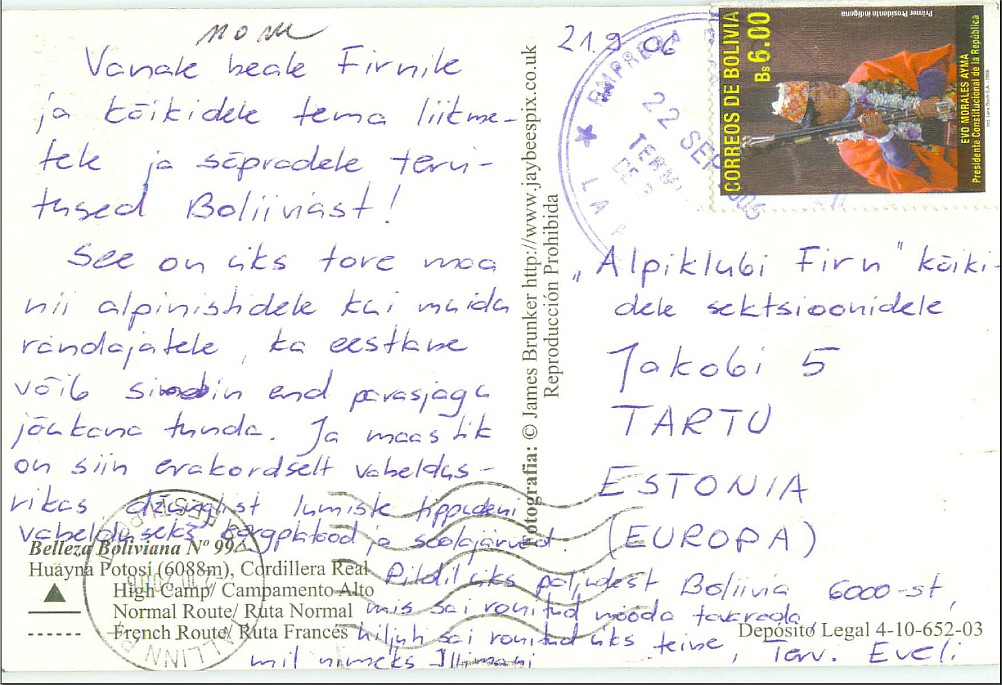 noni
21.9.06
Vanale heale Firnile
ja kõikidele tema liikme-
tele ja sõpradele tervi-
tused Boliiviast!
See on üks tore maa
nii alpinistidele kui muidu
rändajatele, ka eestlane
võib siin end parasjagu
jõukana tunda. Ja maastik
on siin erakordselt vaheldus-
rikas džunglist lumiste tippudeni
vahelduseks kõrgplatood ja soolajärved.
Pildil üks paljudest Boliivia 6000-st,
mis sai ronitud mööda tavarada,
hiljuti sai ronitud üks teine,
mil nimeks Illimani
Terv. Eveli
"Alpiklubi Firn" kõiki-
dele sektsioonidele
Jakobi 5
TARTU
ESTONIA
(EUROPA)
Belleza Boliviana Nº 99
Huayna Potosí (6088m), Cordillera Real
High Camp/ Campamento Alto
Normal Route/ Ruta Normal
French Route/ Ruta Francés
Depósito Legal 4-10-652-03
Fotografía: © James Brunker http://www.jaybeespix.co.uk
Reproducción Prohibida
CORREOS DE BOLIVIA
Bs 6.00
EVO MORALES AYMA
Presidente Constitucional de la República
Primer Presidente indígena
EMPRESA
22 SEP
LA P
TALLINN